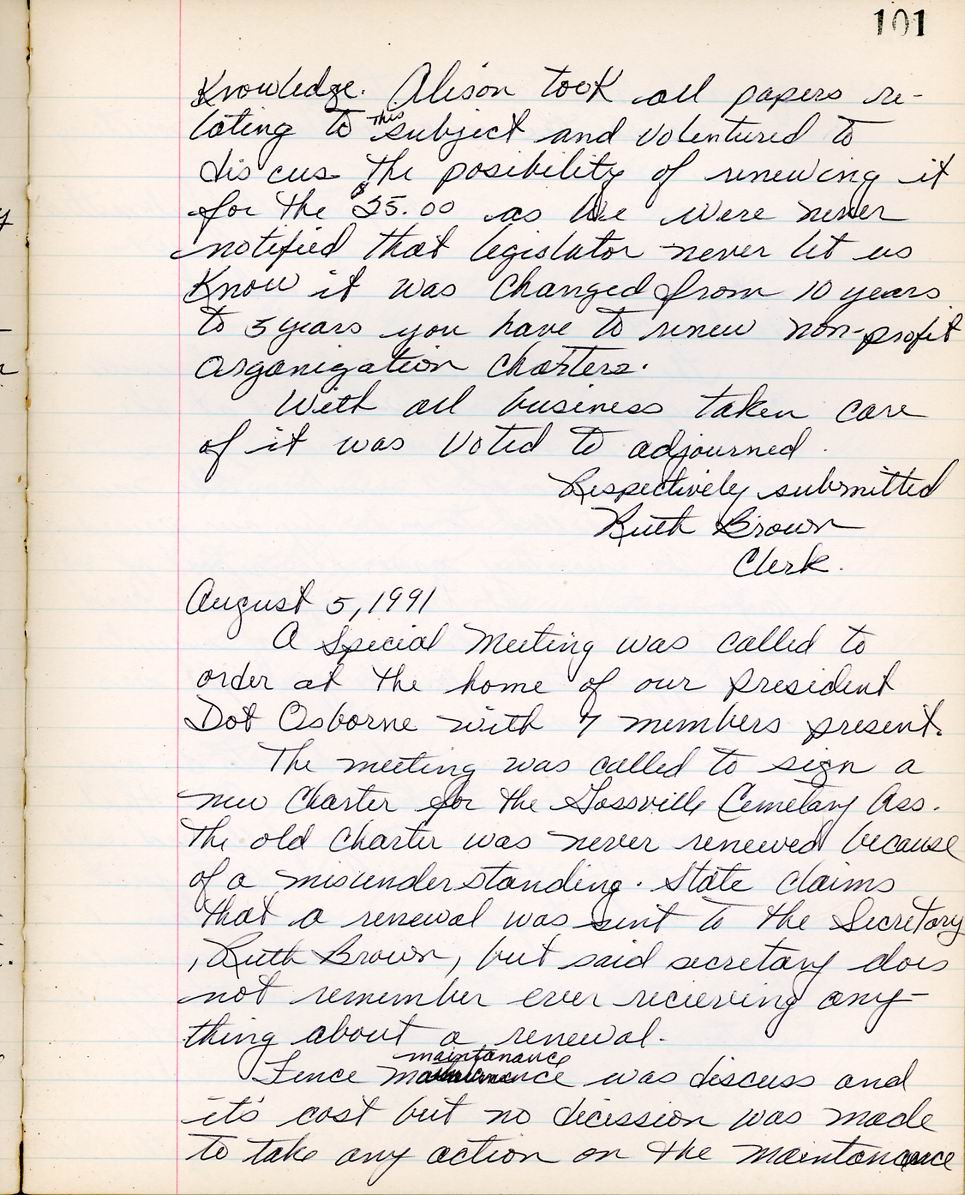 101
Knowledge. Alison took all papers re-
lating to this subject and volentured to
discus the posibility of renewing it
for the $25.00 as we were never
notified that legislator never let us
Know it was changed from 10 years
to 5 years you have to renew non-profit
organization charters.
With all business taken care
of it was voted to adjourned.
Respectively submitted
Ruth Brown
Clerk.
August 5, 1991
A Special Meeting was called to
order at the home of our president
Dot Osborne with 7 members present.
The meeting was called to sign a
new Charter for the Gossville Cemetary Ass.
The old charter was never renewed because
of a misunderstanding. State claims
that a renewal was sent to the Secretary
, Ruth Brown, but said secretary does
not remember ever recieving any-
thing about a renewal.
maintanance
Fence was discuss and
it's cost but no dicission was made
to take any action on the maintanance